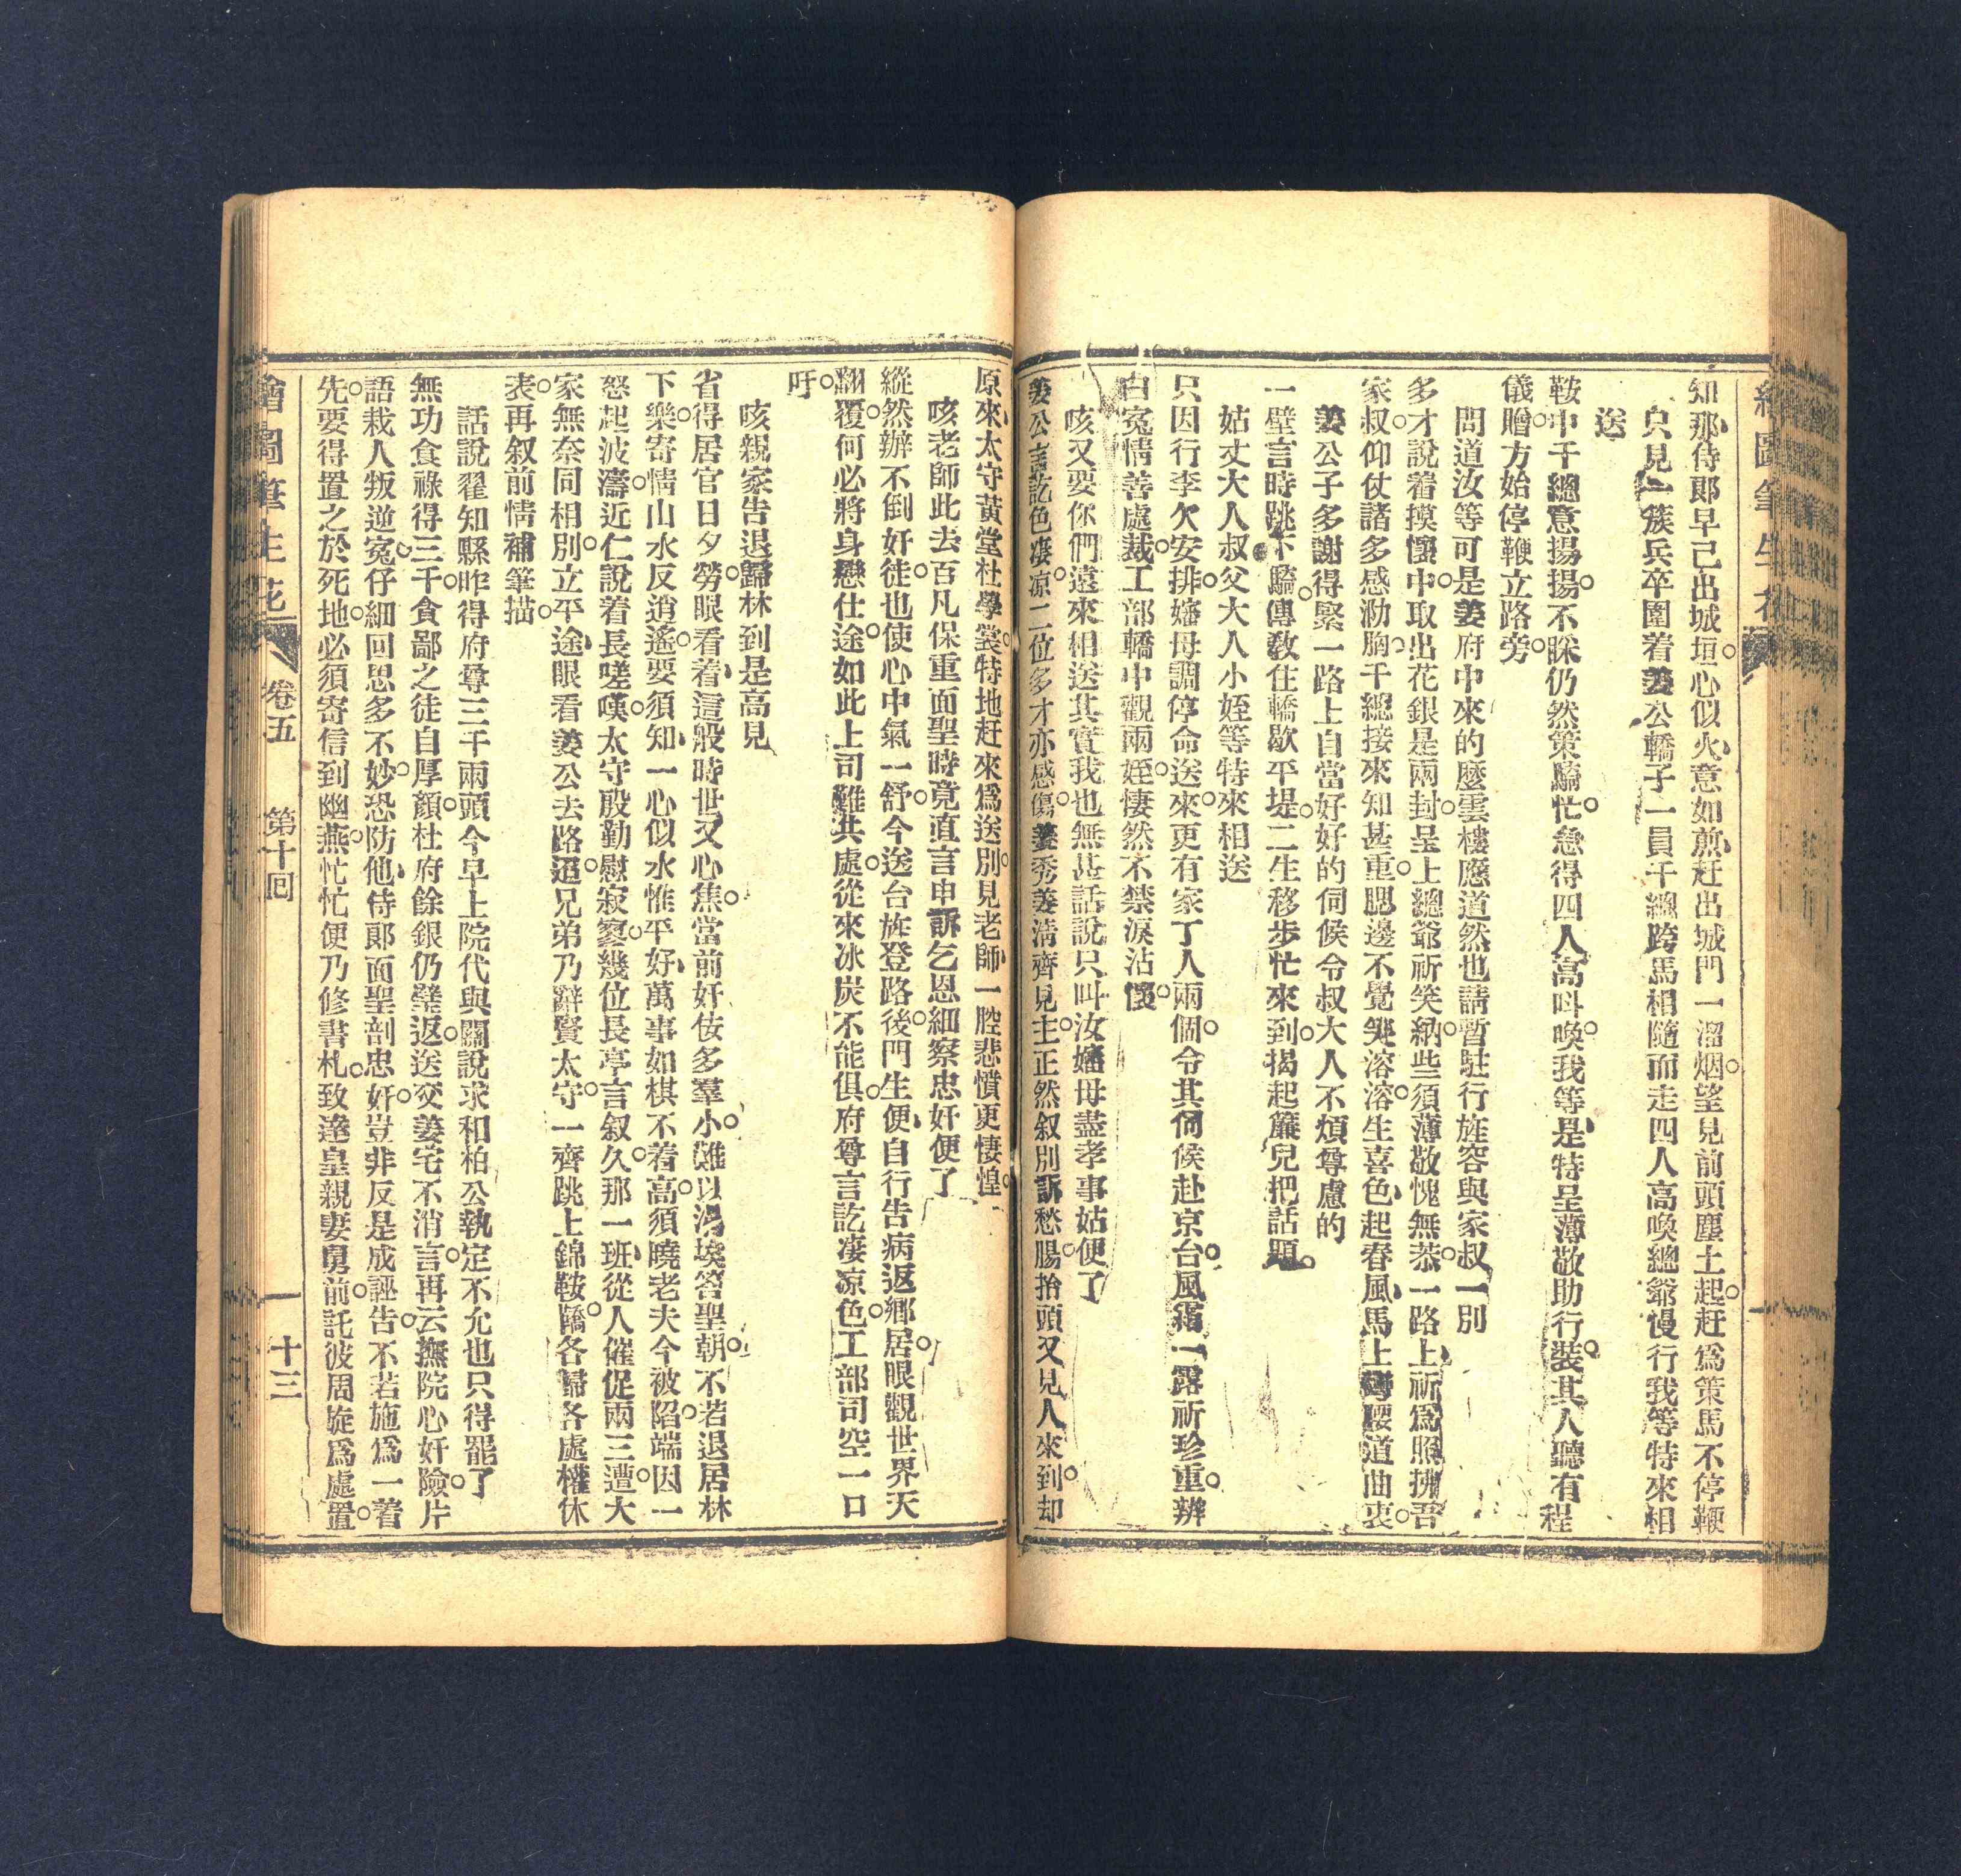 繪圖筆生花
知那侍郎早已出城垣○心似火意如煎赶出城門一溜烟○望見前頭塵土起○赶爲策馬不停鞭
只見一簇兵卒圍着姜公轎子一員千總跨馬相隨而走四人高喚總爺慢行我等特來相
送
鞍中千總意揚揚○不睬仍然策騎忙○急得四人高呌喚○我等是特呈薄敬助行裝○其人聽有程
儀贈○方始停鞭立路旁○
問道汝等可是姜府中來的麼雲樓應道然也請暫駐行旌容與家叔一別
多才說着摸懷中○取出花銀是兩封○呈上總爺祈笑納○些須薄敬愧無恭○一路上祈爲照拂○吾
家叔○仰仗諸多感泐胸○千總接來知甚重○腮邊不覺笑溶溶○生喜色起春風馬上彎腰道曲衷○
姜公子多謝得緊一路上自當好好的伺候令叔大人不煩尊慮的
一壁言時跳下騎○傳教住轎歇平堤○二生移步忙來到○揭起簾兒把話題○
姑丈大人叔父大人小姪等特來相送
只因行李欠安排○嬸母調停命送來○更有家丁人兩個○令其伺候赴京台○風霜一露祈珍重○辨
白冤情善處裁○工部轎中觀兩姪○悽然不禁淚沾懷○
咳又要你們遠來相送其實我也無甚話說只叫汝嬸母盡孝事姑便了
姜公言訖色凄凉○二位多才亦感傷○姜秀姜淸齊見主○正然叙別訴愁腸○抬頭又見人來到○却
原來太守黃堂杜學裳○特地赶來爲送別○見老師一腔悲憤更悽惶○
咳老師此去百凡保重面聖時竟直言申訴乞恩細察忠奸便了
縱然辦不倒奸徒○也使心中氣一舒○今送台旌登路後○門生便自行告病返鄉居○眼觀世界天
翻覆○何必將身戀仕途○如此上司難共處○從來冰炭不能俱○府尊言訖凄凉色○工部司空一口
吁○
咳親家告退歸林到是高見
省得居官日夕勞○眼看着這般時世又心焦○當前奸佞多羣小○難以涓埃答聖朝○不若退居林
下樂○寄情山水反逍遙○要須知一心似水惟平好○萬事如棋不着高○須曉老夫今被陷○端因一
怒起波濤○近仁說着長嗟嘆○太守殷勤慰寂寥○幾位長亭言叙久○那一班從人催促兩三遭○大
家無奈同相別○立平途眼看姜公去路迢○兄弟乃辭賢太守○一齊跳上錦鞍驕○各歸各處權休
表○再叙前情補筆描○
話說翟知縣昨得府尊三千兩頭今早上院代與關說求和柏公執定不允也只得罷了
無功食祿得三千○貪鄙之徒自厚顔○杜府餘銀仍璧返○送交姜宅不消言○再云撫院心奸險○片
語栽人叛逆冤○仔細回思多不妙○恐防他侍郎面聖剖忠奸○豈非反是成誣告○不若施爲一着
先○要得置之於死地○必須寄信到幽燕○忙忙便乃修書札○致達皇親妻舅前○託彼周旋爲處置○
繪圖筆生花
卷五
第十回
十三